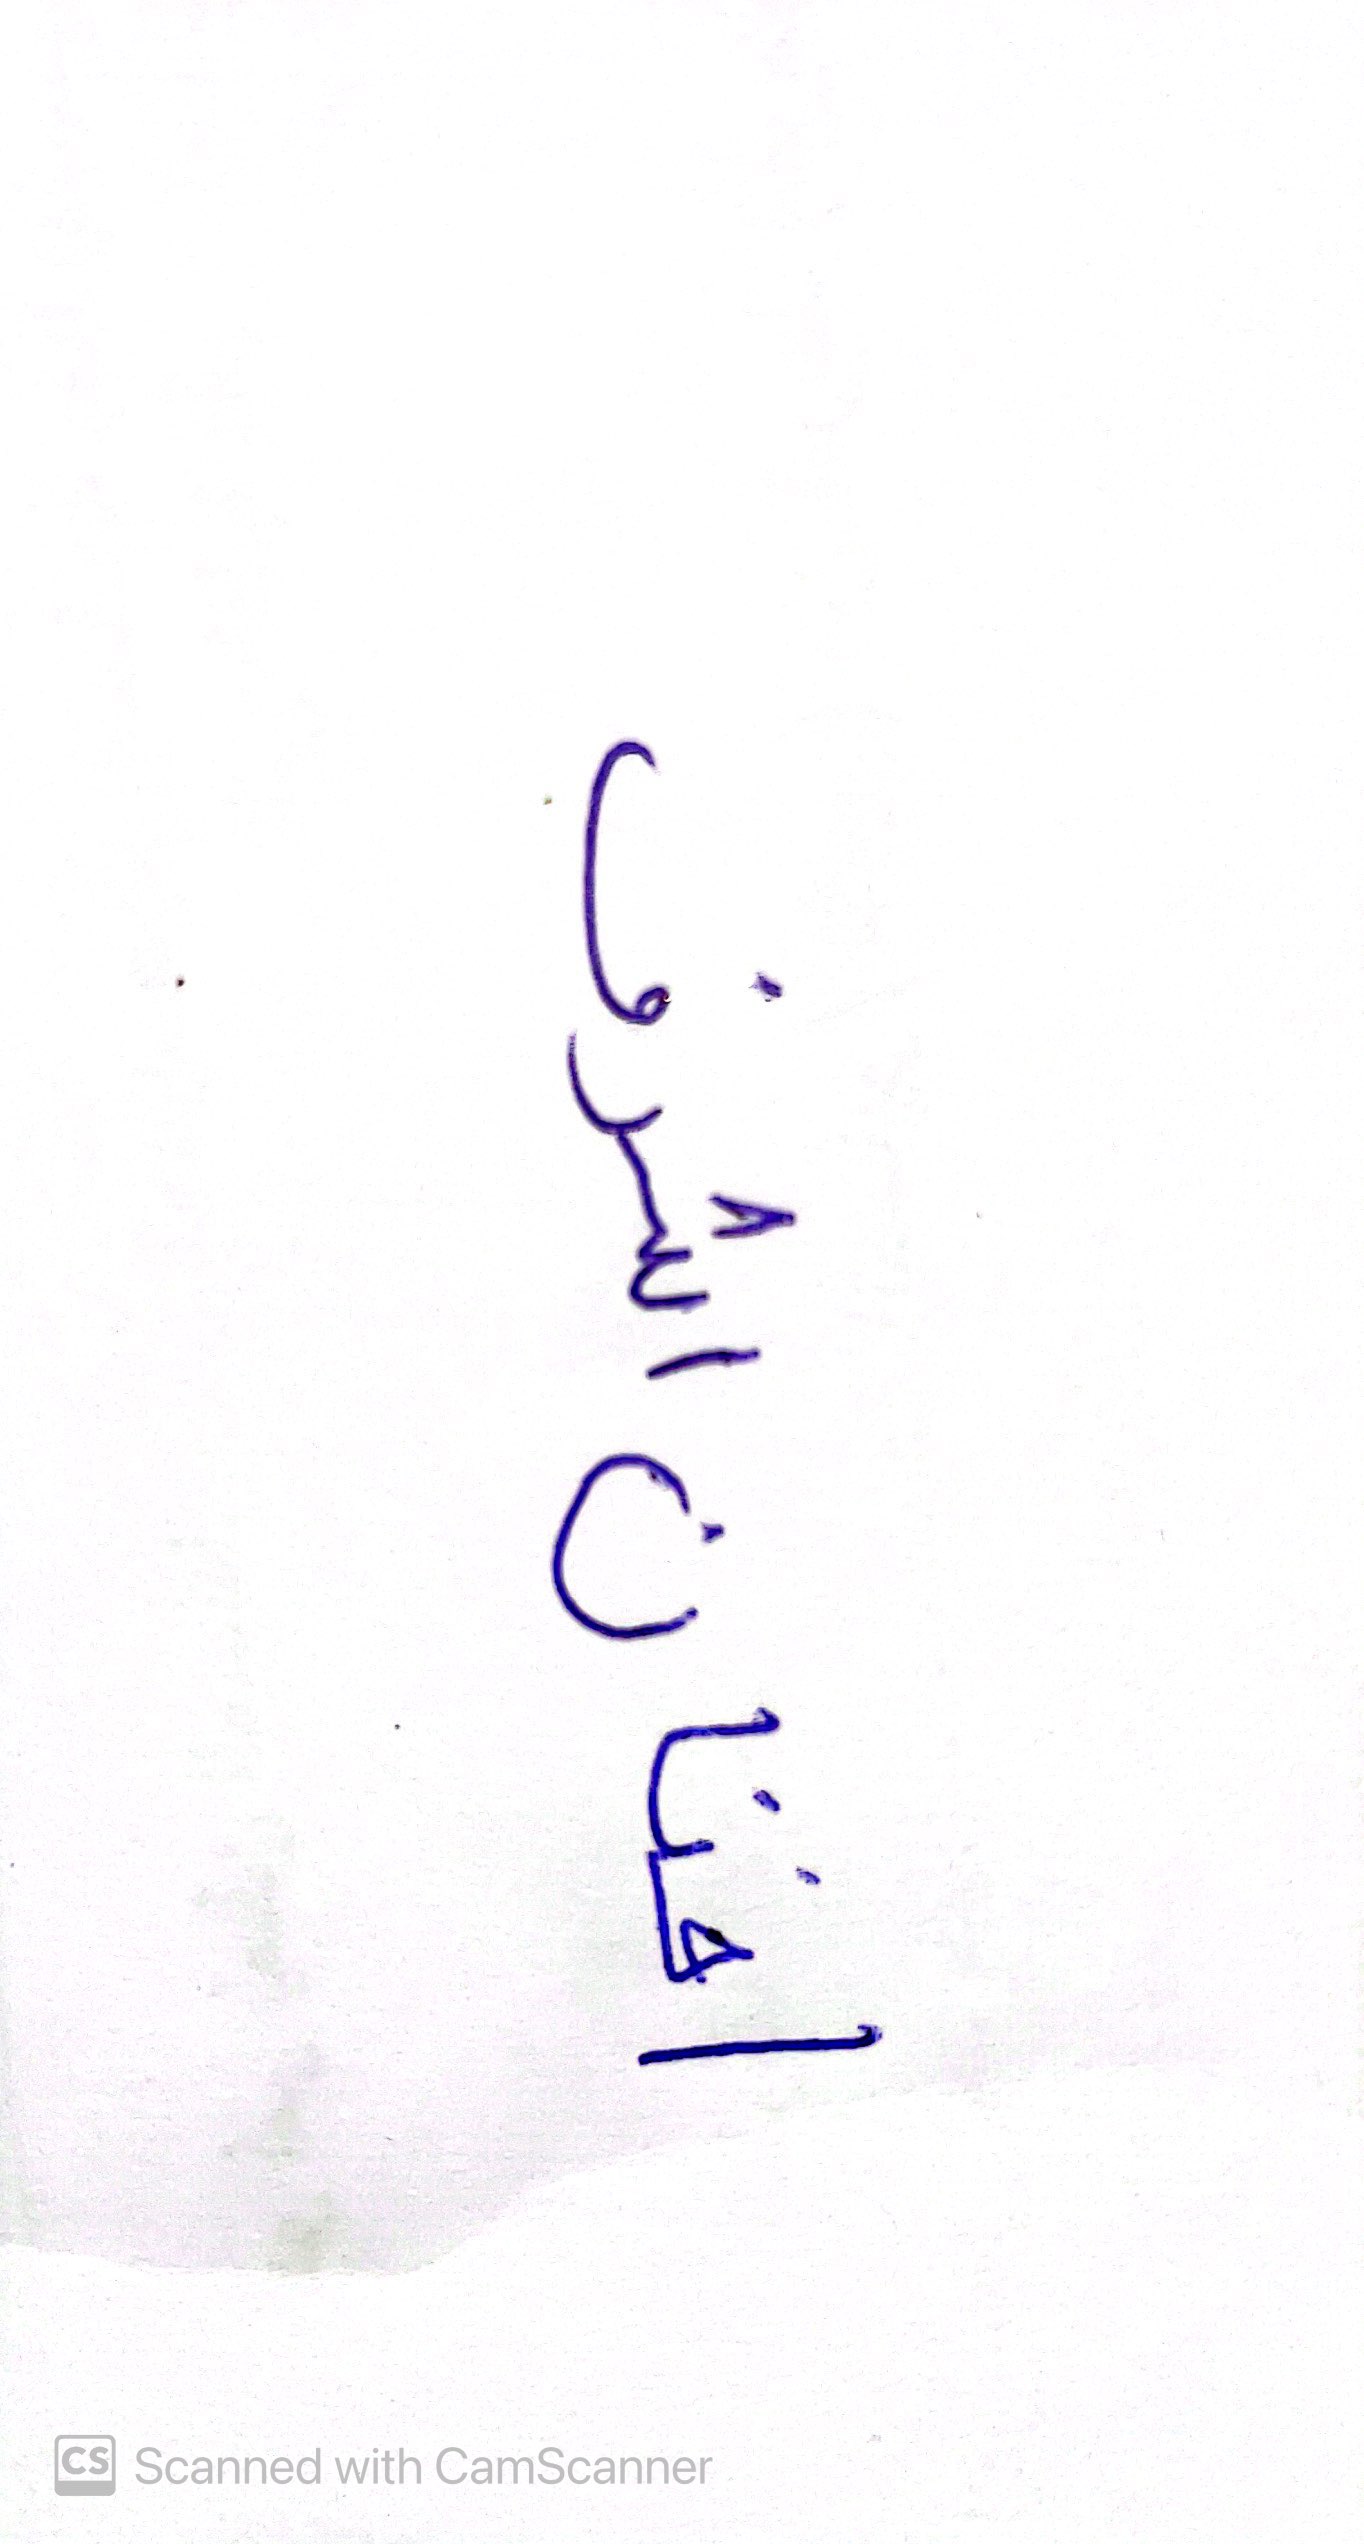 افنان اشرف
CS Scanned with CamScanner